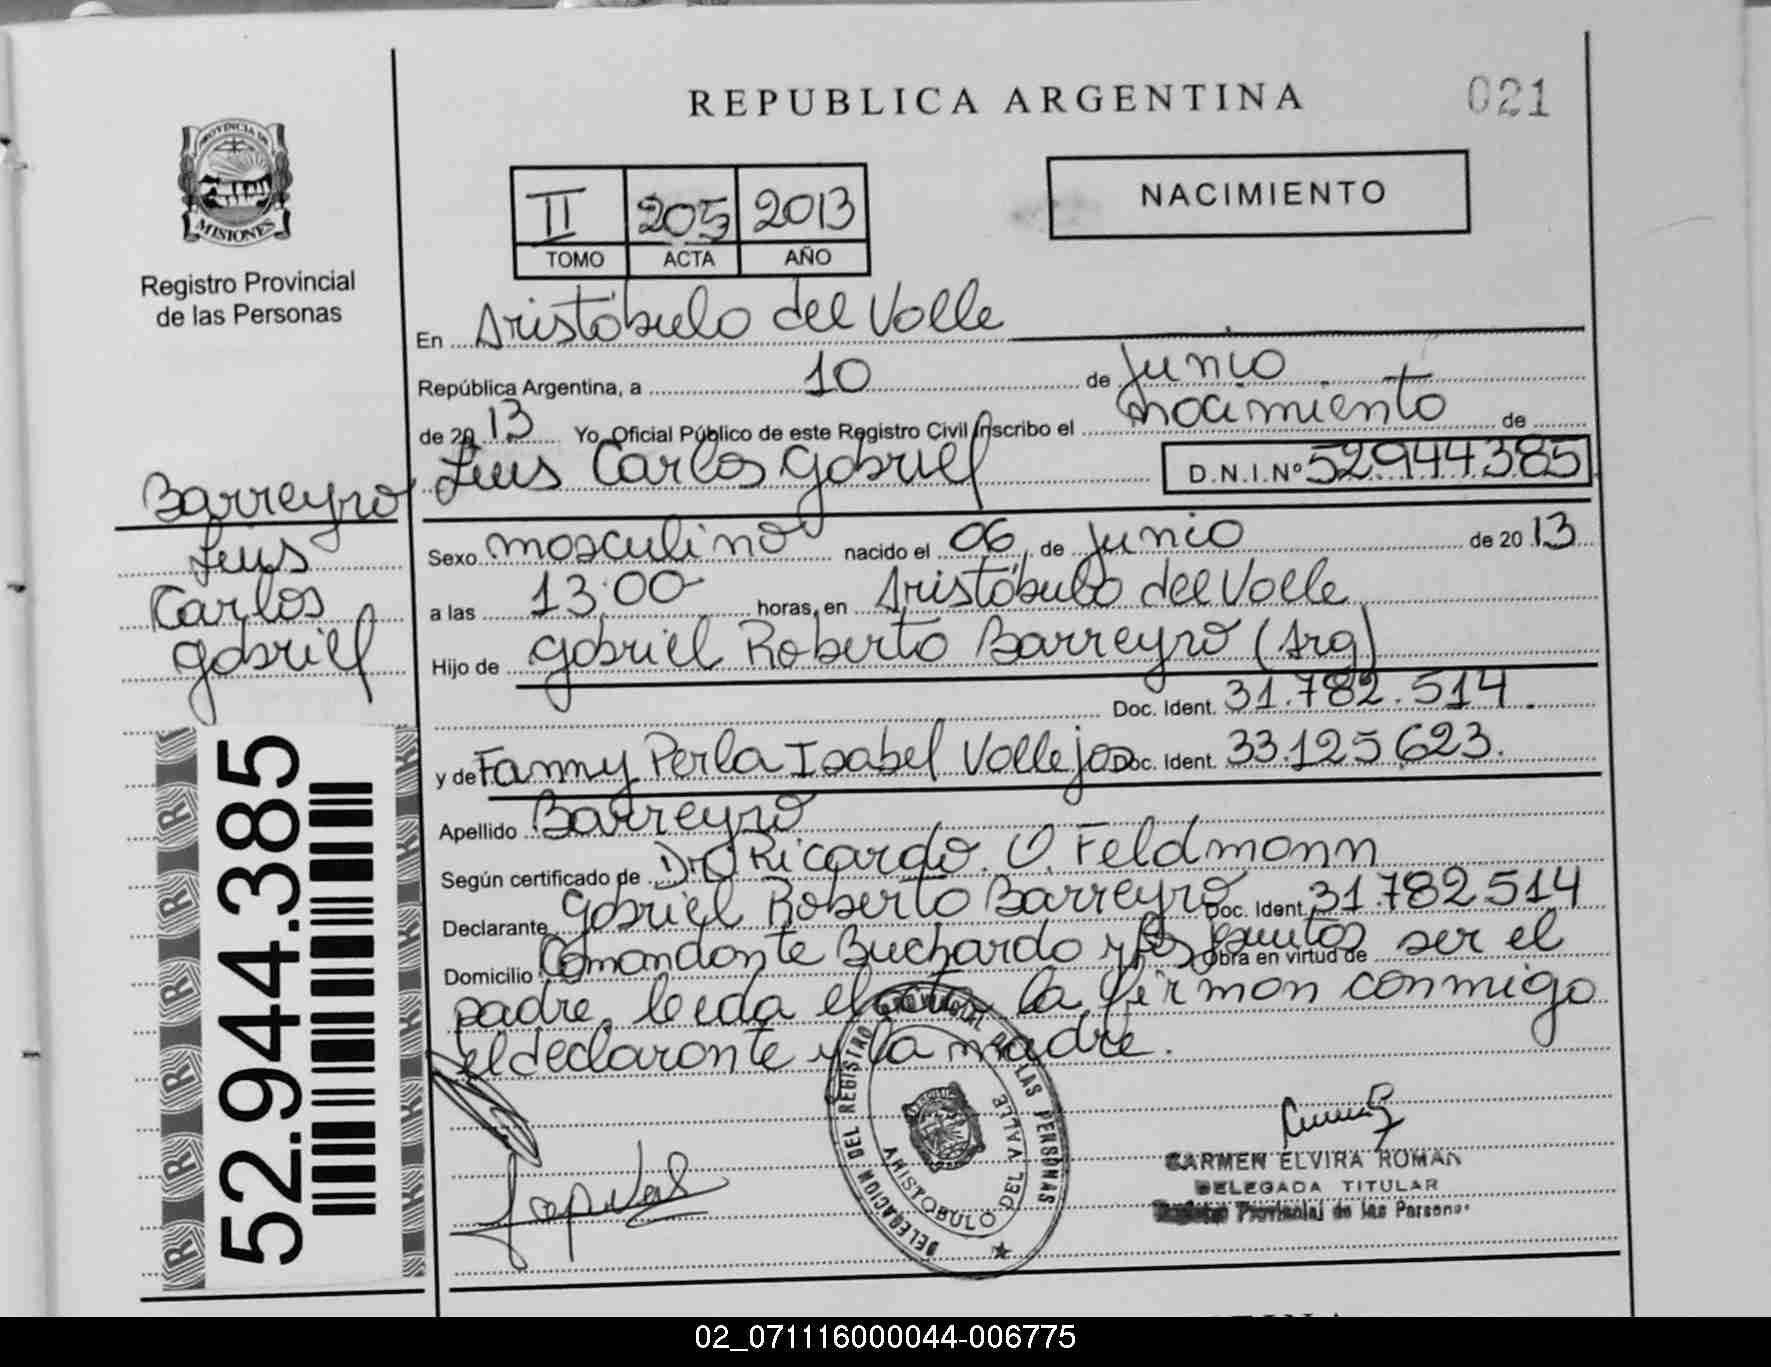 REPUBLICA ARGENTINA
021
PROVINCIA DE
MISIONES
Registro Provincial
de las Personas
II 205 2013
TOMO ACTA AÑO
NACIMIENTO
En Aristóbulo del Valle
República Argentina, a 10 de Junio
de 2013 Yo, Oficial Público de este Registro Civil Inscribo el nacimiento de
Luis Carlos Gabriel D.N.I.Nº 52944385
Barreyro
Luis
Carlos
Gabriel
Sexo masculino nacido el 06 de Junio de 2013
a las 13:00 horas, en Aristóbulo del Valle
Hijo de Gabriel Roberto Barreyro (Arg)
Doc. Ident. 31.782.514.
y de Fanny Perla Isabel Vallejos Doc. Ident. 33.125.623.
Apellido Barreyro
Según certificado de Dr. Ricardo O. Feldmann
Declarante Gabriel Roberto Barreyro Doc. Ident. 31.782514
Domicilio Comandante Buchardo y Obra en virtud de ser el
padre, leida el acta la firman conmigo
el declarante y la madre.
52.944.385
DELEGACION DEL REGISTRO PROVINCIAL DE LAS PERSONAS
ARISTOBULO DEL VALLE
CARMEN ELVIRA ROMAN
DELEGADA TITULAR
Registro Provincial de las Personas
02_071116000044-006775